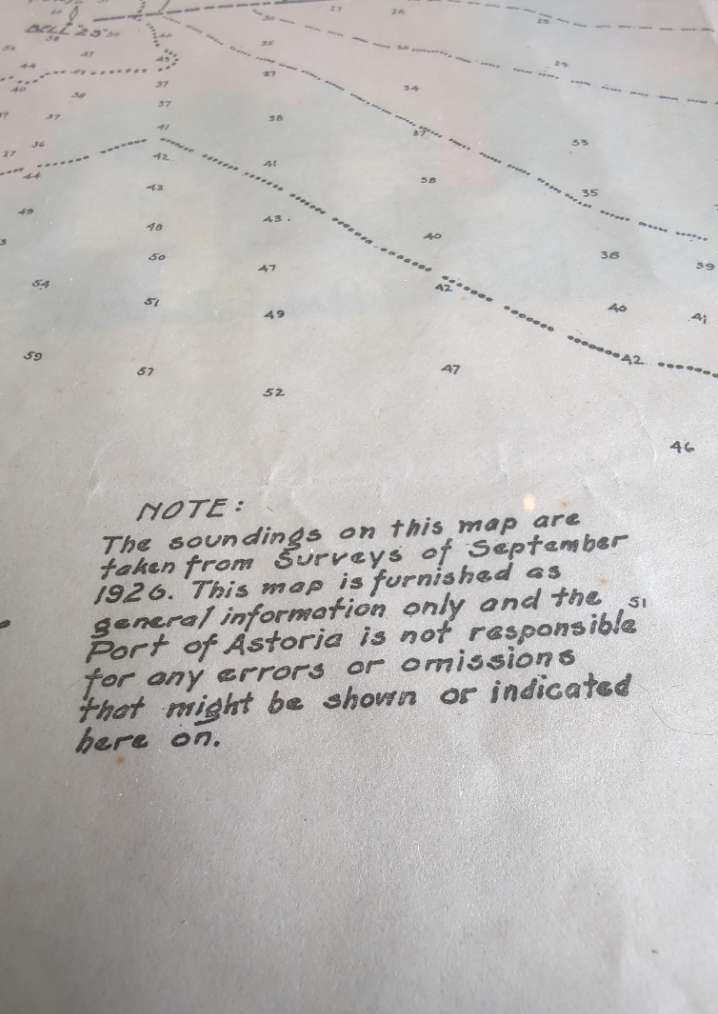 27 26 25
BELL 25
30
35 30 29
44 41 45
40 37 37 34
38 37
37 38 37 33
41
36
27 42 41
44 43 38 35
49 43.
48 40 38 39
50 47
54 42
51 49 40 41
59 42
57 47
52
46
NOTE:
The soundings on this map are
taken from Surveys of September
1926. This map is furnished as
general information only and the 51
Port of Astoria is not responsible
for any errors or omissions
that might be shown or indicated
here on.